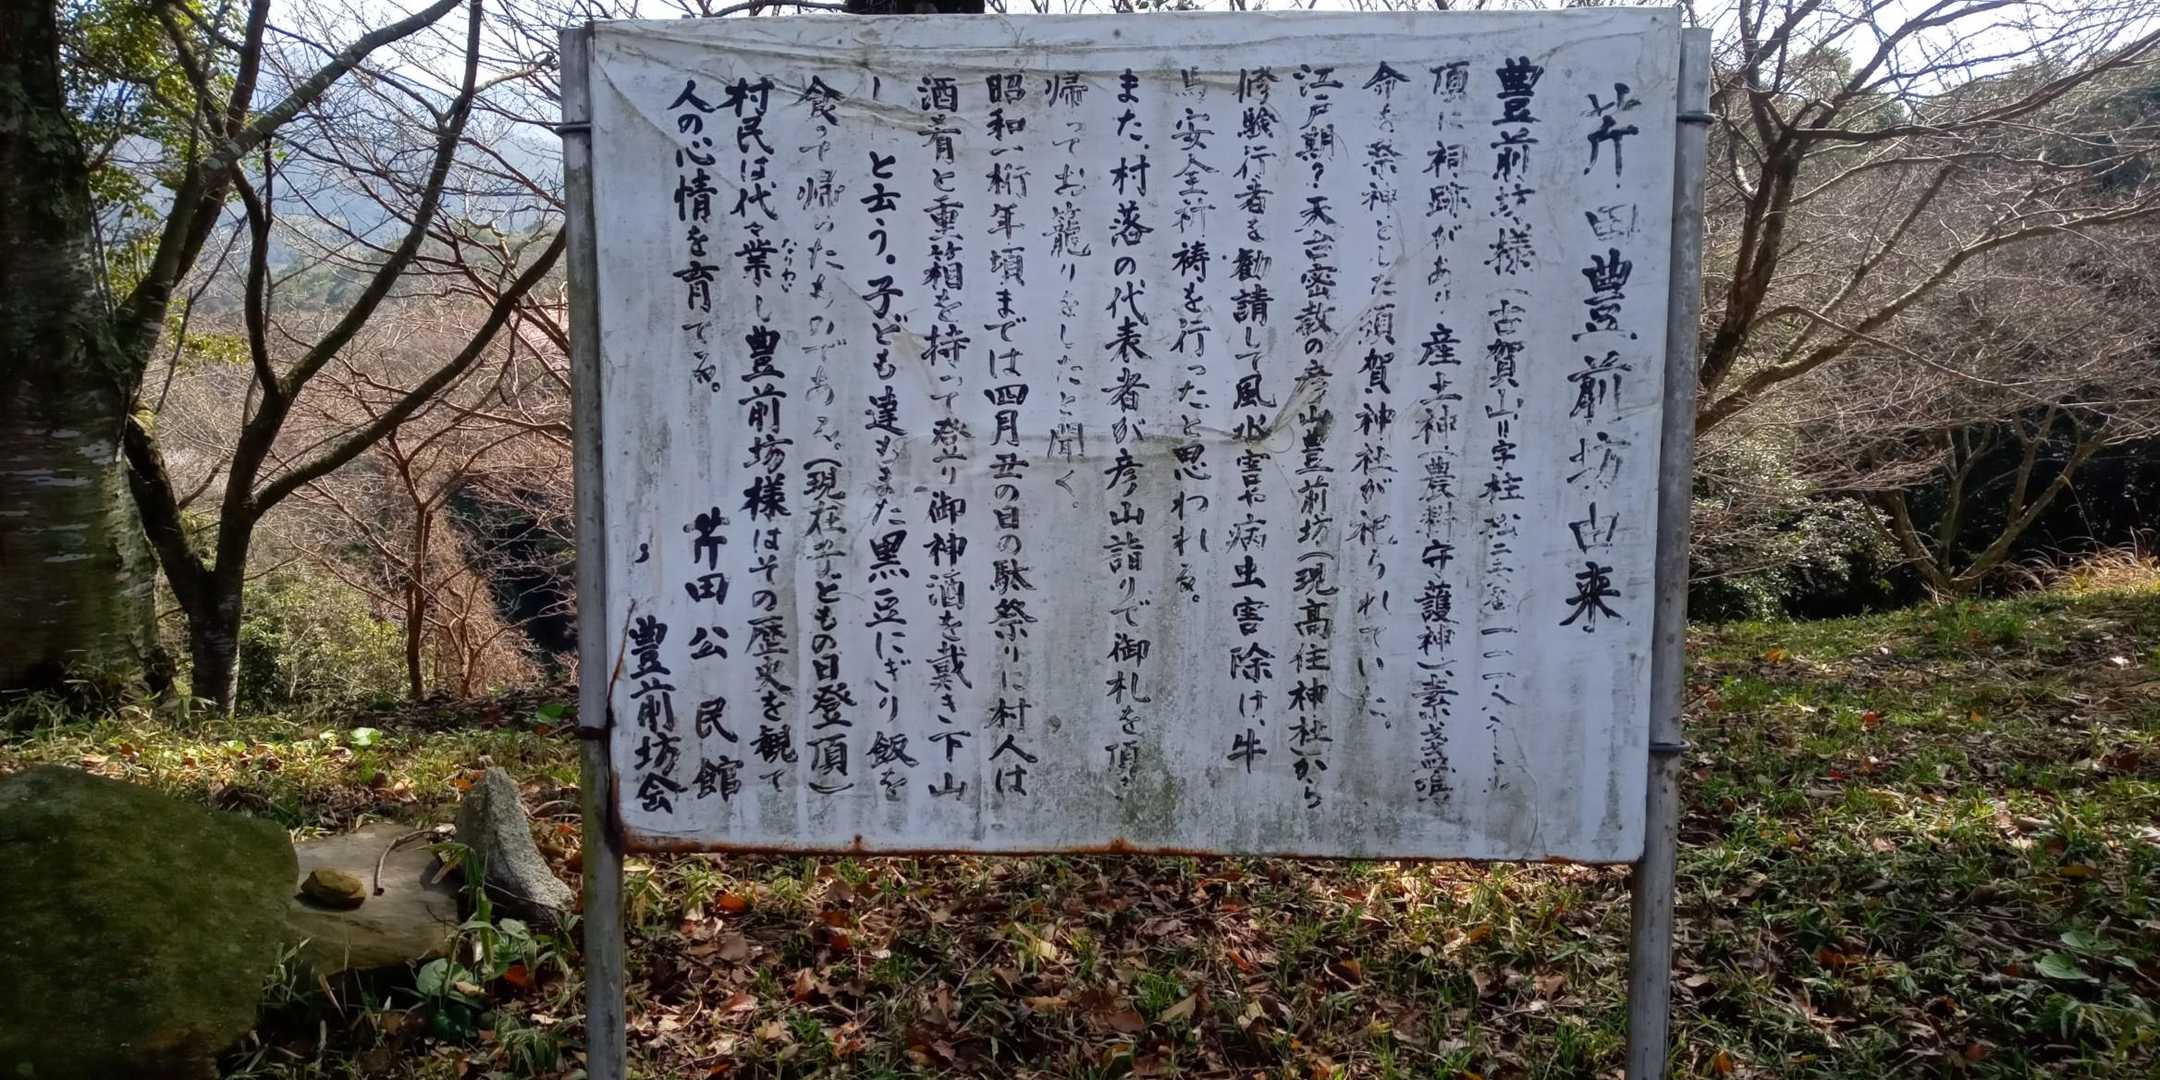 芹田豊前坊由来
豊前坊様(古賀山字柱
頂に祠跡があり産土神(農耕守護神)素戔嗚
命を祭神とした須賀神社が祀られていた。
江戸期?天台密教の彦山豊前坊(現高住神社)から
修験行者を勧請して風水害や病虫害除け、牛
馬安全祈祷を行ったと思われる。
また、村落の代表者が彦山詣りで御札を頂き
帰ってお籠りをしたと聞く。
昭和一桁年頃までは四月丑の日の駄祭りに村人は
酒肴と重箱を持って登り御神酒を戴き下山
したと云う。子ども達もまた黒豆にぎり飯を
食って帰ったものである。(現在子どもの日登頂)
村民は代々業し豊前坊様はその歴史を観て
なりわい
人の心情を育てる。
芹田公民館
〃豊前坊会